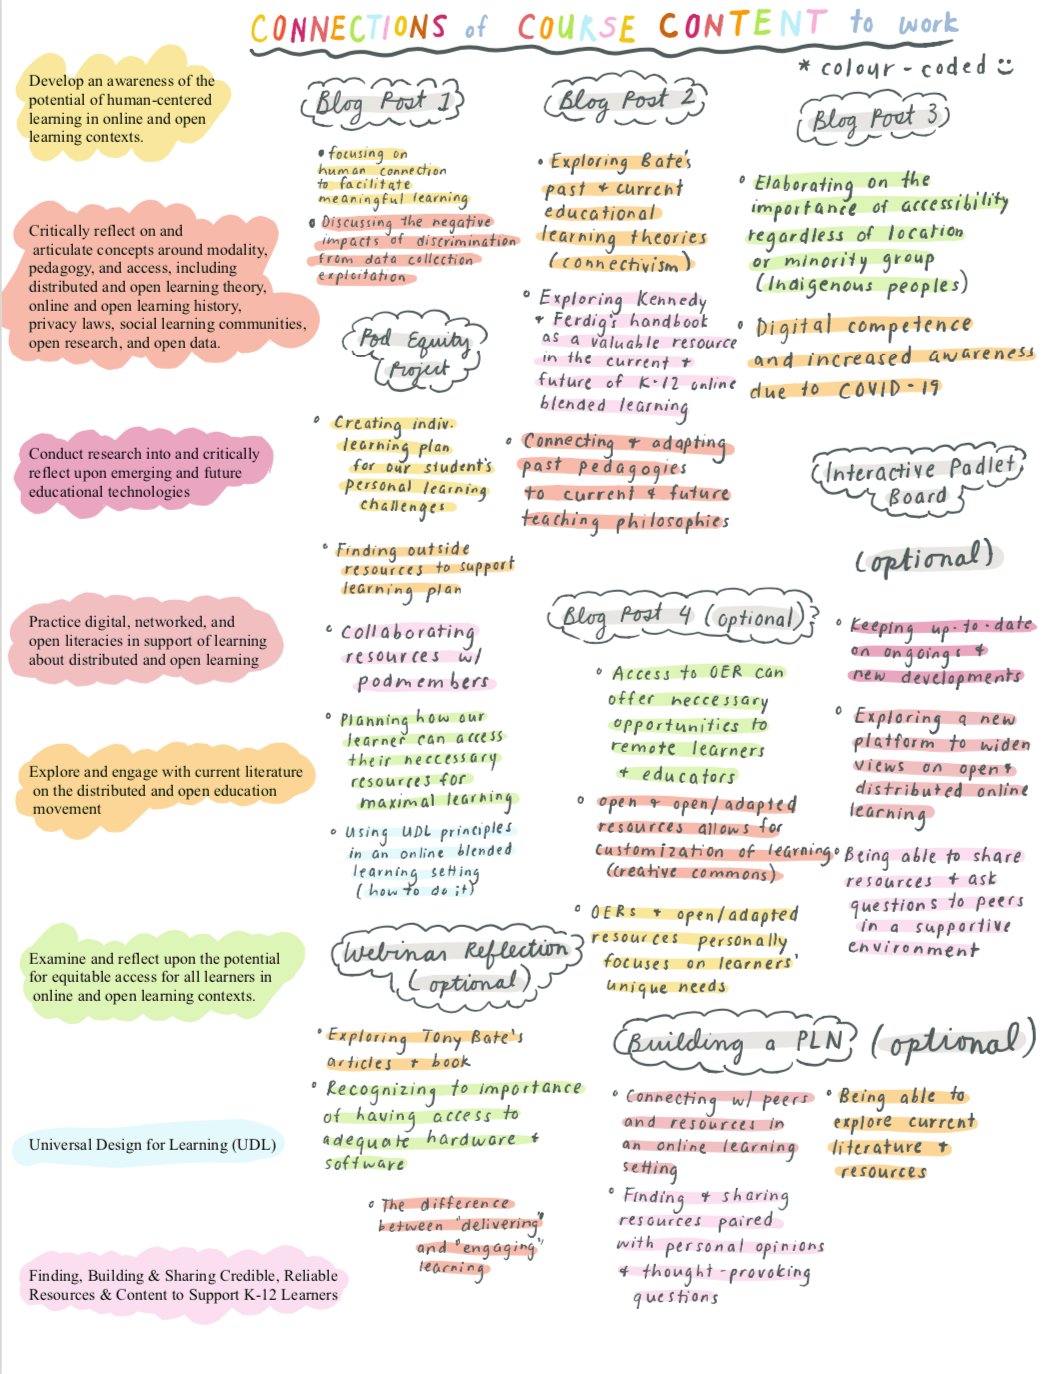 CONNECTIONS of COURSE CONTENT to work
* colour-coded
Develop an awareness of the
potential of human-centered
learning in online and open
learning contexts.
Critically reflect on and
articulate concepts around modality,
pedagogy, and access, including
distributed and open learning theory,
online and open learning history,
privacy laws, social learning communities,
open research, and open data.
Conduct research into and critically
reflect upon emerging and future
educational technologies
Practice digital, networked, and
open literacies in support of learning
about distributed and open learning
Explore and engage with current literature
on the distributed and open education
movement
Examine and reflect upon the potential
for equitable access for all learners in
online and open learning contexts.
Universal Design for Learning (UDL)
Finding, Building & Sharing Credible, Reliable
Resources & Content to Support K-12 Learners
Blog Post 1
• focusing on
human connection
to facilitate
meaningful learning
• Discussing the negative
impacts of discrimination
from data collection
exploitation
Pod Equity
Project
° Creating indiv.
learning plan
for our student's
personal learning
challenges
° Finding outside
resources to support
learning plan
° Collaborating
resources w/
podmembers
° Planning how our
learner can access
their neccessary
resources for
maximal learning
° Using UDL principles
in an online blended
learning setting
(how to do it)
Webinar Reflection
(optional)
° Exploring Tony Bate's
articles + book
° Recognizing to importance
of having access to
adequate hardware +
software
° The difference
between "delivering"
and "engaging"
learning
Blog Post 2
• Exploring Bate's
past + current
educational
learning theories
(connectivism)
° Exploring Kennedy
+ Ferdig's handbook
as a valuable resource
in the current +
future of K-12 online
blended learning
° Connecting + adapting
past pedagogies
to current + future
teaching philosophies
Blog Post 4 (optional)
° Access to OER can
offer neccessary
opportunities to
remote learners
+ educators
° open + open/adapted
resources allows for
customization of learning
(creative commons)
° OERs + open/adapted
resources personally
focuses on learners'
unique needs
Blog Post 3
° Elaborating on the
importance of accessibility
regardless of location
or minority group
(Indigenous peoples)
° Digital competence
and increased awareness
due to COVID-19
Interactive Padlet
Board
(optional)
° Keeping up-to-date
on ongoings +
new developments
° Exploring a new
platform to widen
views on open +
distributed online
learning
° Being able to share
resources + ask
questions to peers
in a supportive
environment
Building a PLN (optional)
° Connecting w/ peers
and resources in
an online learning
setting
° Finding + sharing
resources paired
with personal opinions
+ thought-provoking
questions
° Being able to
explore current
literature +
resources